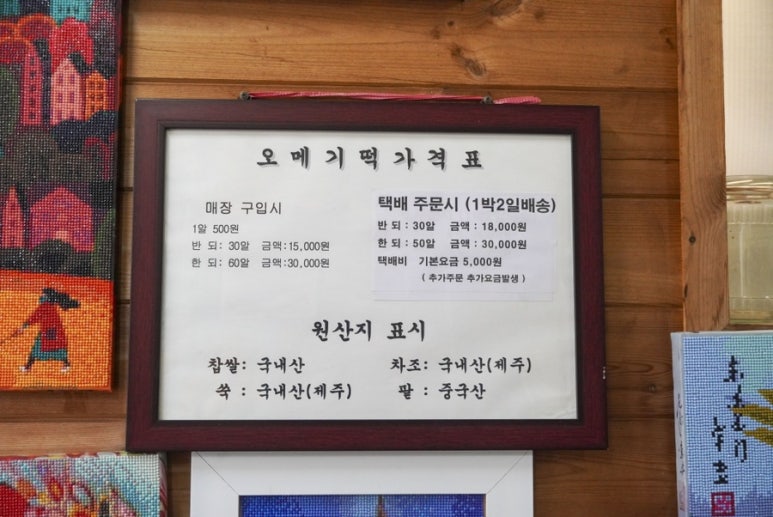 오메기떡가격표
매장 구입시
1알 500원
반 되: 30알 금액:15,000원
한 되: 60알 금액:30,000원
택배 주문시 (1박2일배송)
반 되 : 30알 금액 : 18,000원
한 되 : 50알 금액 : 30,000원
택배비 기본요금 5,000원
( 추가주문 추가요금발생 )
원산지 표시
찹쌀: 국내산 차조: 국내산(제주)
쑥 : 국내산(제주) 팥 : 중국산